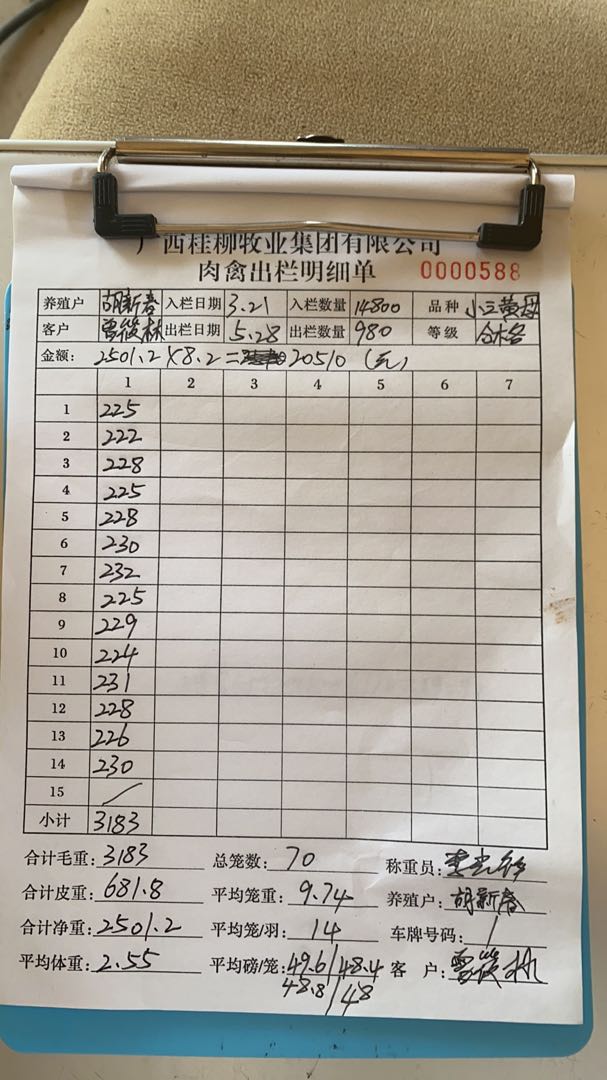 广西桂柳牧业集团有限公司
肉禽出栏明细单 0000588
养殖户 胡新春 入栏日期 3.21 入栏数量 14800 品种 小三黄母
客户 曾筱林 出栏日期 5.28 出栏数量 980 等级 合格
金额: 2501.2×8.2= 20510 (元)
1 2 3 4 5 6 7
1 225
2 222
3 228
4 225
5 228
6 230
7 232
8 225
9 229
10 224
11 231
12 228
13 226
14 230
15 /
小计 3183
合计毛重: 3183 总笼数: 70 称重员:
合计皮重: 681.8 平均笼重: 9.74 养殖户: 胡新春
合计净重: 2501.2 平均笼/羽: 14 车牌号码: /
平均体重: 2.55 平均磅/笼: 49.6/48.4 客 户: 曾筱林
48.8/48